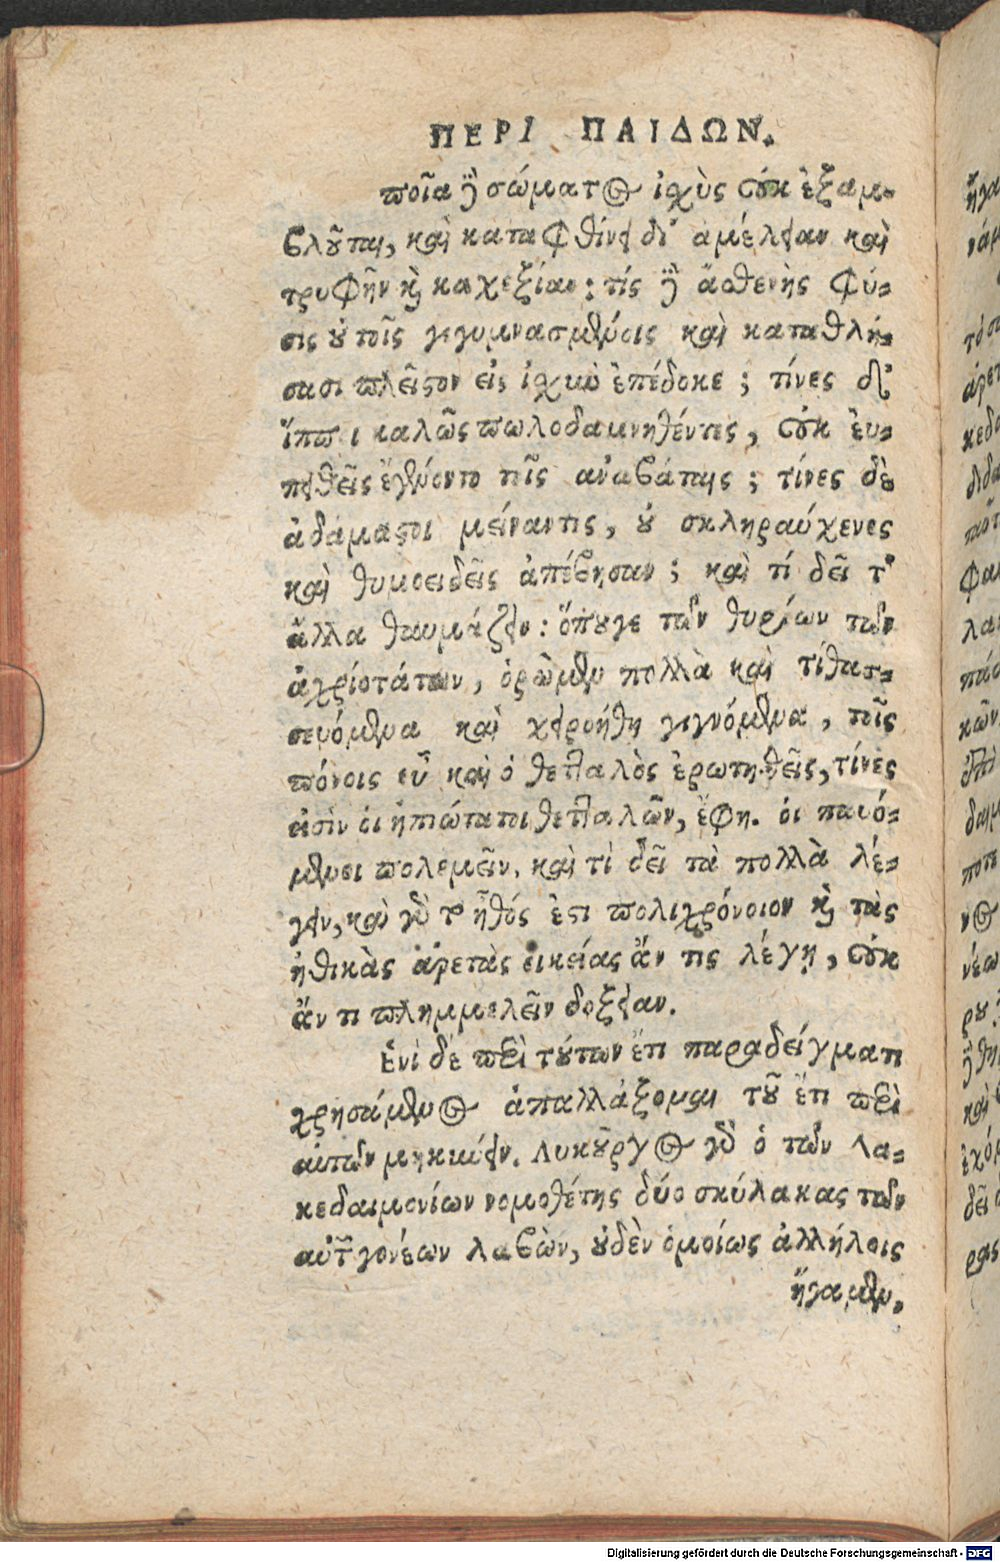 ΠΕΡΙ ΠΑΙΔΩΝ.
ποῖα δὲ σώματος ἰχὺς οὐκ ἐξαμ-
βλοῦται, καὶ καταφθίνει δι' ἀμέλειαν καὶ
τρυφὴν καὶ καχεξίαν; τίς δὲ ἀσθενὴς φύ-
σις οὐ τοῖς γεγυμνασμένοις καὶ καταθλή-
σασι πλεῖστον εἰς ἰχὺν ἐπέδοκε; τίνες δὲ
ἵπποι καλῶς πωλοδαμνηθέντες, οὐκ ἐυ-
πειθεῖς ἐγένοντο τοῖς ἀναβάταις; τίνες δὲ
ἀδάμαστοι μείναντες, οὐ σκληραύχενες
καὶ θυμοειδεῖς ἀπέβησαν; καὶ τί δεῖ τὰ
ἄλλα θαυμάζειν: ὅπουγε τῶν θυρίων τῶν
ἀγρίοτάτων, ὁρῶμεν πολλὰ καὶ τίθασ-
σευόμενα καὶ χειροήθη γιγνόμενα, τοῖς
πόνοις εὖ καὶ ὁ θετταλὸς ἐρωτηθεὶς, τίνες
εἰσὶν οἱ ἠπιώτατοι θετταλῶν, ἔφη. οἱ παυό-
μενοι πολεμεῖν. καὶ τί δεῖ τὰ πολλὰ λέ-
γειν, καὶ γὰρ τὸ ἦθός ἐστι πολιχρόνοιον καὶ τὰς
ἠθικὰς ἀρετὰς οἰκείας ἄν τις λέγῃ, οὐκ
ἄν τι πλημμελεῖν δοξειαν.
Ἑνὶ δὲ περὶ τούτων ἔτι παραδείγματι
χρησάμενος ἀπαλλάξομαι τοῦ ἔτι περὶ
αὐτῶν μηκύνειν. Λυκοῦργος γὰρ ὁ τῶν Λα-
κεδαιμονίων νομοθέτης δύο σκύλακας τῶν
αὐτῶν γονέων λαβὼν, οὐδὲν ὁμοίως ἀλλήλοις
ἤγαμεν,
Digitalisierung gefördert durch die Deutsche Forschungsgemeinschaft - DFG